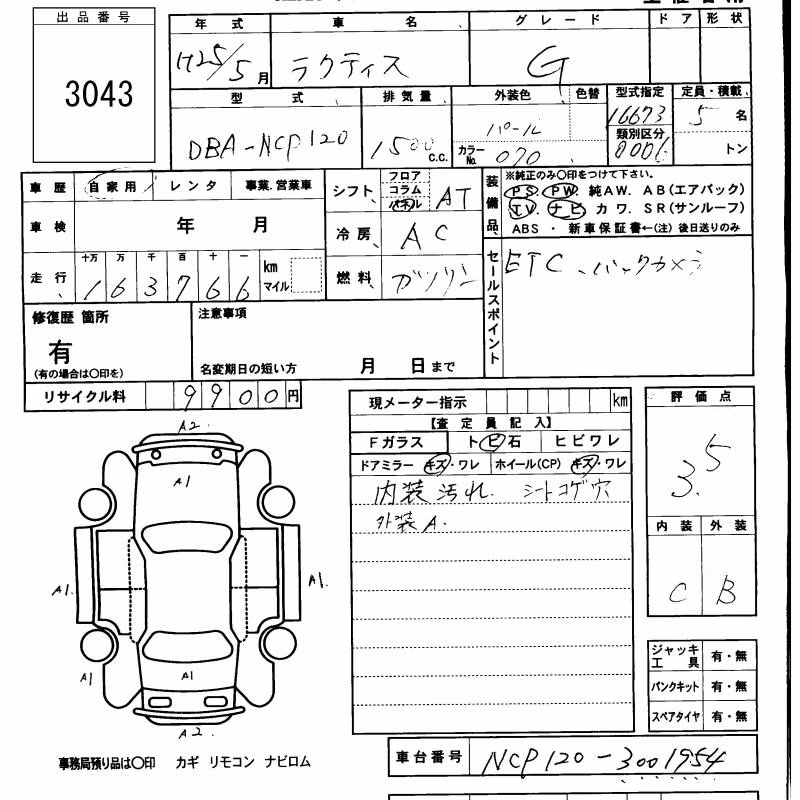 出品番号
3043
年式 車名 グレード ドア 形状
H25/5月 ラクティス G
型式 排気量 外装色 色替 型式指定 定員・積載
DBA-NCP120 1500 c.c. パール カラーNo. 070 16673 5名
類別区分 0006 トン
車歴 自家用 レンタ 事業.営業車
シフト フロア コラム パネル AT
装備品 ※純正のみ○印をつけて下さい。
PS. PW. 純AW. AB(エアバック)
TV. ナビ カワ. SR(サンルーフ)
ABS ・ 新車保証書←(注) 後日送りのみ
車検 年 月
冷房 AC
走行 十万 万 千 百 十 一 km マイル
163766
燃料 ガソリン
セールスポイント ETC、バックカメラ
修復歴 箇所
有
(有の場合は○印を)
注意事項
名変期日の短い方 月 日まで
リサイクル料 9900円
現メーター指示 km
【査定員記入】
Fガラス ト ビ 石 ヒビワレ
ドアミラー キズ・ワレ ホイール(CP) キズ・ワレ
内装汚れ. シートコゲ穴
外装A.
評価点
3.5
内装 外装
C B
A2
A1
A1.
A1.
A1
A1
A2.
ジャッキ工具 有・無
パンクキット 有・無
スペアタイヤ 有・無
事務局預り品は○印 カギ リモコン ナビロム
車台番号 NCP120-3001954